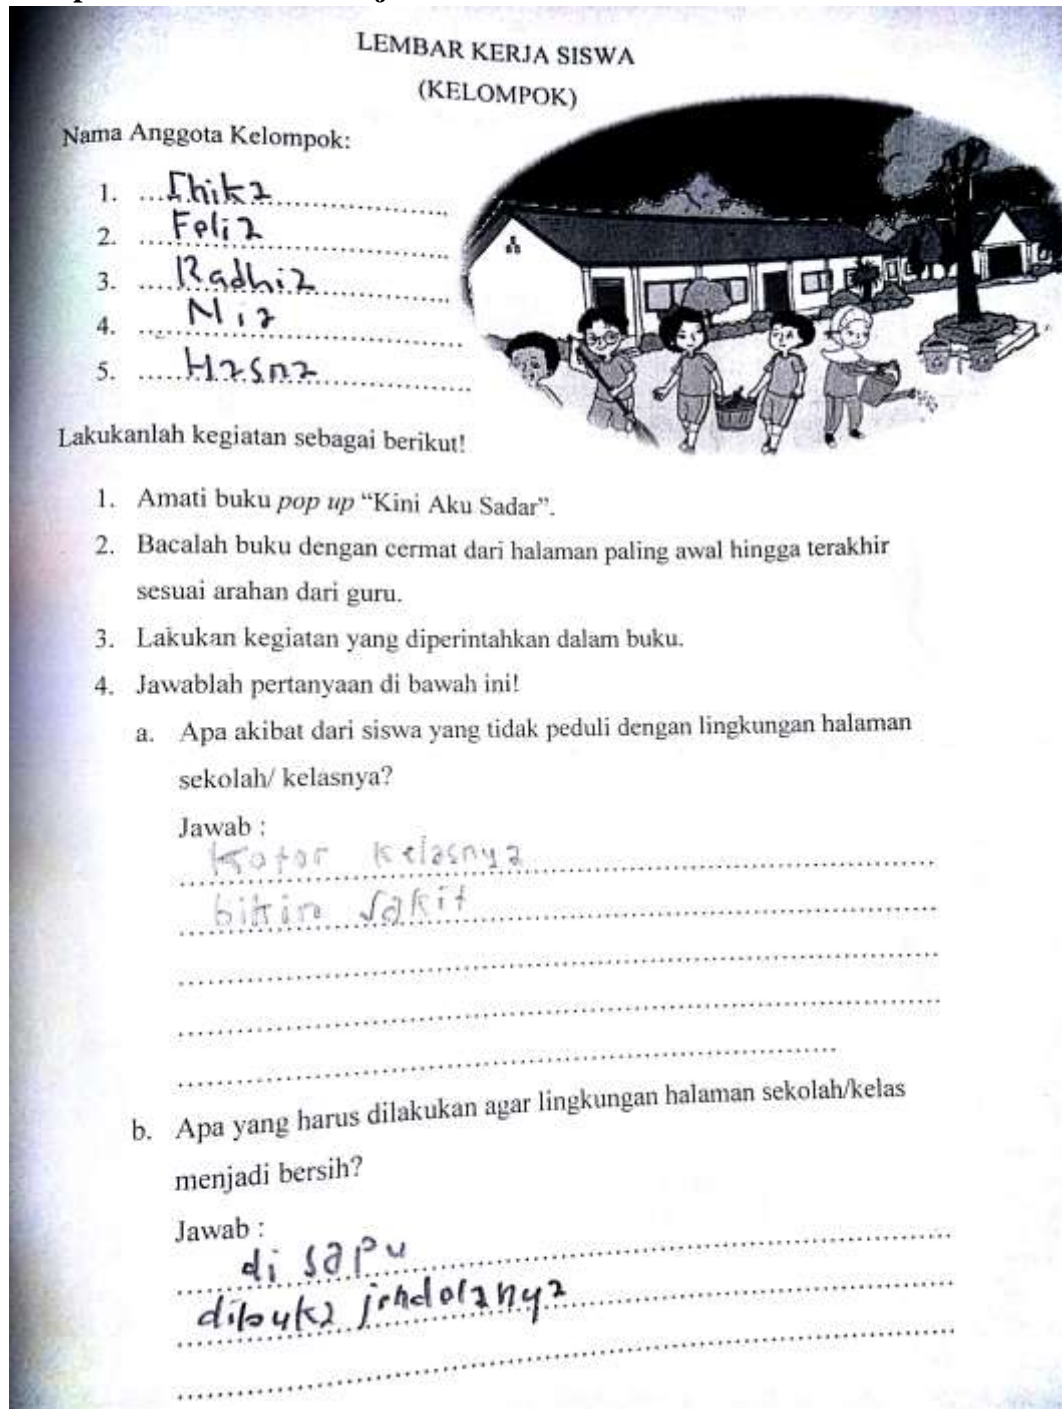 LEMBAR KERJA SISWA
(KELOMPOK)
Nama Anggota Kelompok:
1. Shika
2. Felia
3. Radhia
4. Mia
5. Hasna
Lakukanlah kegiatan sebagai berikut!
1. Amati buku pop up “Kini Aku Sadar”.
2. Bacalah buku dengan cermat dari halaman paling awal hingga terakhir
sesuai arahan dari guru.
3. Lakukan kegiatan yang diperintahkan dalam buku.
4. Jawablah pertanyaan di bawah ini!
a. Apa akibat dari siswa yang tidak peduli dengan lingkungan halaman
sekolah/ kelasnya?
Jawab :
Kotor kelasnya
bikin sakit
b. Apa yang harus dilakukan agar lingkungan halaman sekolah/kelas
menjadi bersih?
Jawab :
di sapu
dibuka jendelanya